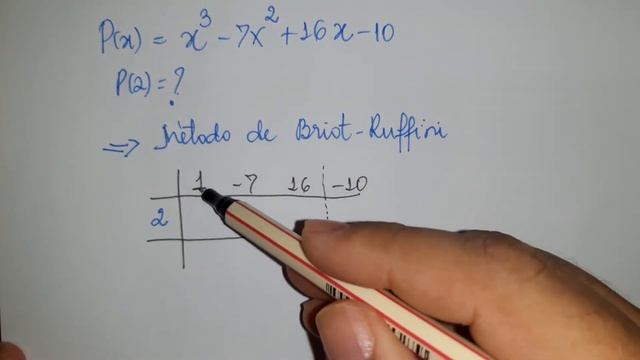 P(x) = x³ - 7x² + 16x - 10
P(2) = ?
⇒ Método de Briot-Ruffini
1 -7 16 -10
2